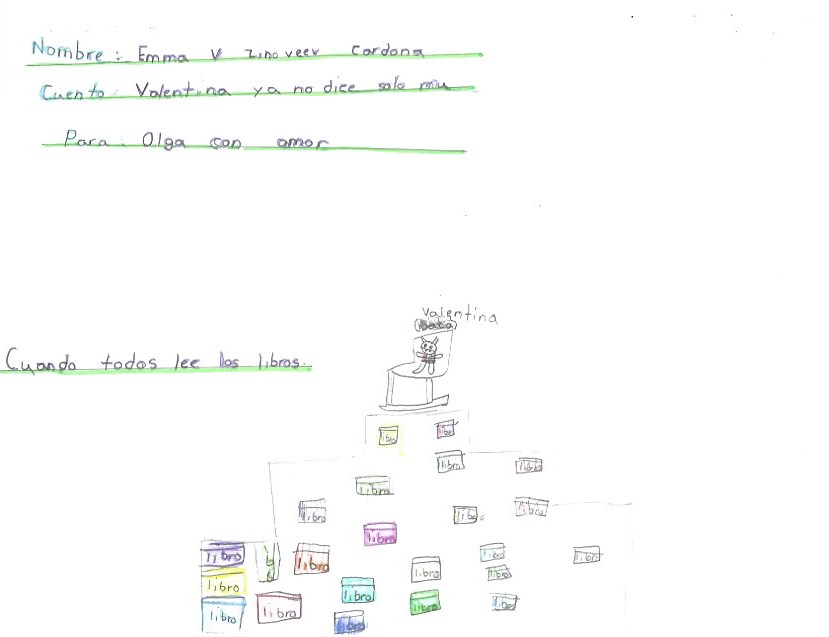 Nombre: Emma V Zinoveev Cardona
Cuento: Valentina ya no dice solo mu
Para: Olga con amor
Valentina
Cuando todos lee los libros.
libro libro
libro libro
libro
libro libro libro
libro
libro libro libro libro libro
libro libro libro
libro libro libro libro libro
libro